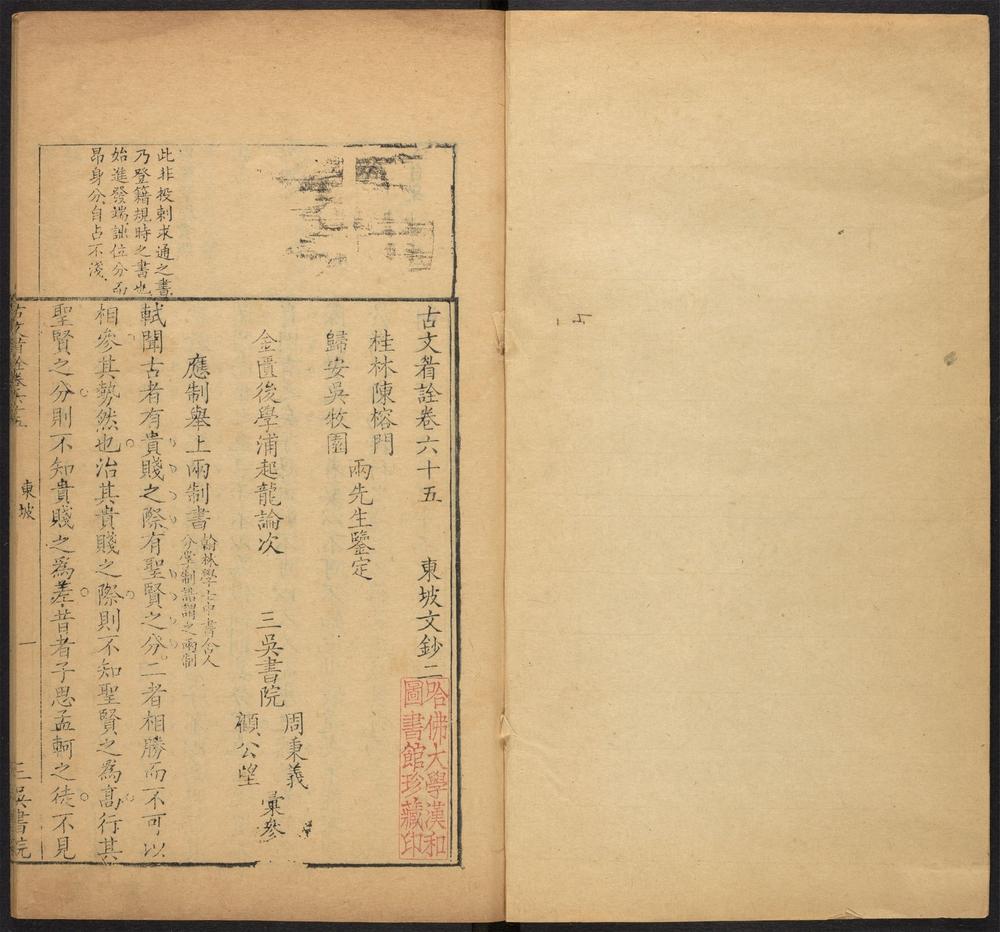 古文眉詮卷六十五　東坡文鈔二
哈佛大學漢和
圖書館珍藏印
桂林陳榕門
歸安吳牧園
兩先生鑒定
金匱後學浦起龍論次　三吳書院
周秉義
顧公望
彙參
應制舉上兩制書
翰林學士中書舍人
分掌制誥謂之兩制
軾聞古者有貴賤之際有聖賢之分二者相勝而不可以
相參其勢然也治其貴賤之際則不知聖賢之為高行其
聖賢之分則不知貴賤之為差昔者子思孟軻之徒不見
此非投刺求通之書
乃登籍規時之書也
始進發端詘位分而
昂身分自占不淺
古文眉詮卷六十五　東坡　一　三吳書院